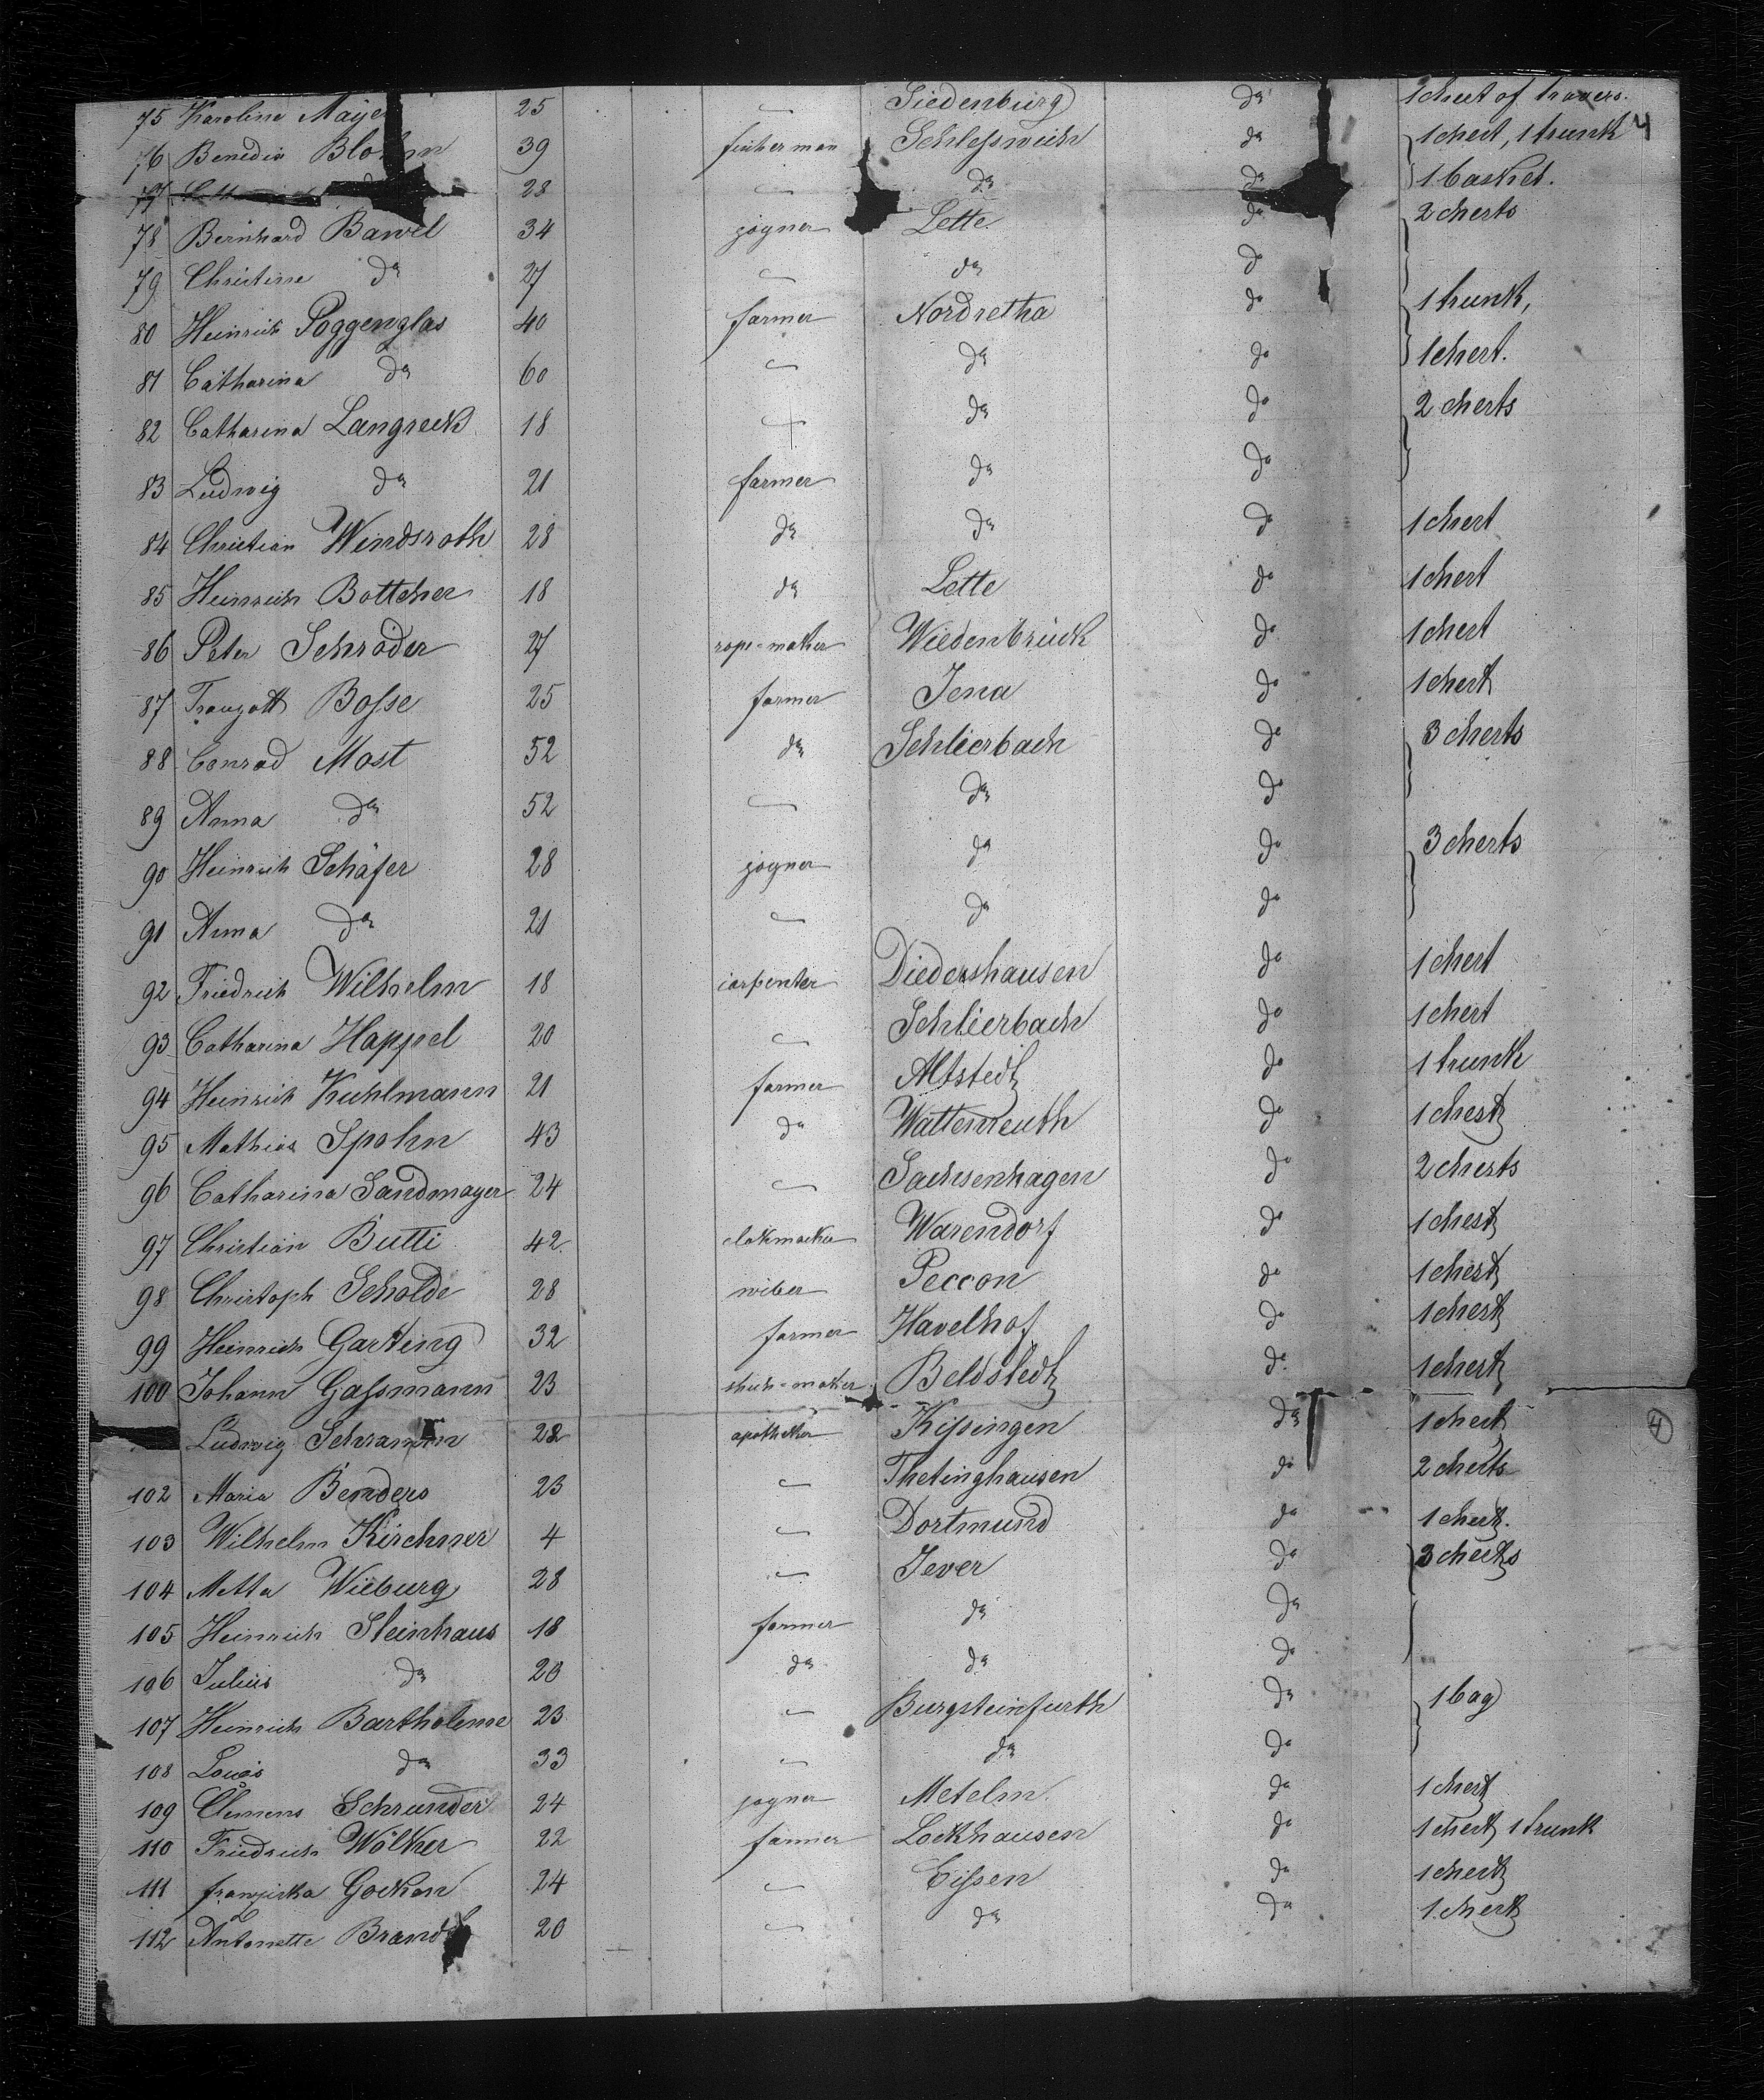 75 Karoline Mayer 25 — Siedenburg do 1 chest of travers.
76 Benedix Blohm 39 fischerman Schlesswich do 1 chest, 1 trunk 4
77 28 — do do 1 basket.
78 Bernhard Bawel 34 jogner Lette do 2 chests
79 Christine do 27 — do do
80 Heinrich Poggenglas 40 farmer Nordretha do 1 trunk,
81 Catharina do 60 — do do 1 chest.
82 Catharina Langreck 18 — do do 2 chests
83 Ludwig do 21 farmer do do
84 Christian Windsroth 28 do do do 1 chest
85 Heinrich Bottcher 18 do Lette do 1 chest
86 Peter Schröder 27 rope-maker Wiedenbrück do 1 chest
87 Traugott Bosse 25 farmer Jena do 1 chest
88 Conrad Most 52 do Schlierbach do 3 chests
89 Anna do 52 — do do
90 Heinrich Schäfer 28 jogner do do 3 chests
91 Anna do 21 — do do
92 Friedrich Wilhelm 18 carpenter Diedershausen do 1 chest
93 Catharina Happel 20 — Schlierbach do 1 chest
94 Heinrich Kuhlmann 21 farmer Altstedt do 1 trunk
95 Mathias Spohn 43 do Wattenreuth do 1 chest
96 Catharina Sandmayer 24 — Sachsenhagen do 2 chests
97 Christian Butti 42 clokmacker Warendorf do 1 chest
98 Christoph Scholde 28 wiber Peccon do 1 chest
99 Heinrich Garking 32 farmer Havelhof do 1 chest
100 Johann Gassmann 23 shuh-maker Beldstedt do 1 chest
Ludwig Schramm 28 apotheker Kissingen do 1 chest 4
102 Maria Benders 23 — Thetinghausen do 2 chests
103 Wilhelm Kirchner 4 — Dortmund do 1 chest.
104 Metta Wieburg 28 — Jever do 3 chests
105 Heinrich Steinhaus 18 farmer do do
106 Julius do 20 do do do
107 Heinrich Bartholeme 23 — Burgsteinfurth do 1 bag
108 Louis do 33 — do do
109 Clemens Schrunder 24 jogner Metelm. do 1 chest
110 Friedrich Wölker 22 farmer Lockhausen do 1 chest 1 trunk
111 franziska Gocken 24 — Eissen do 1 chest
112 Antonette Brandt 20 — do do 1 chest